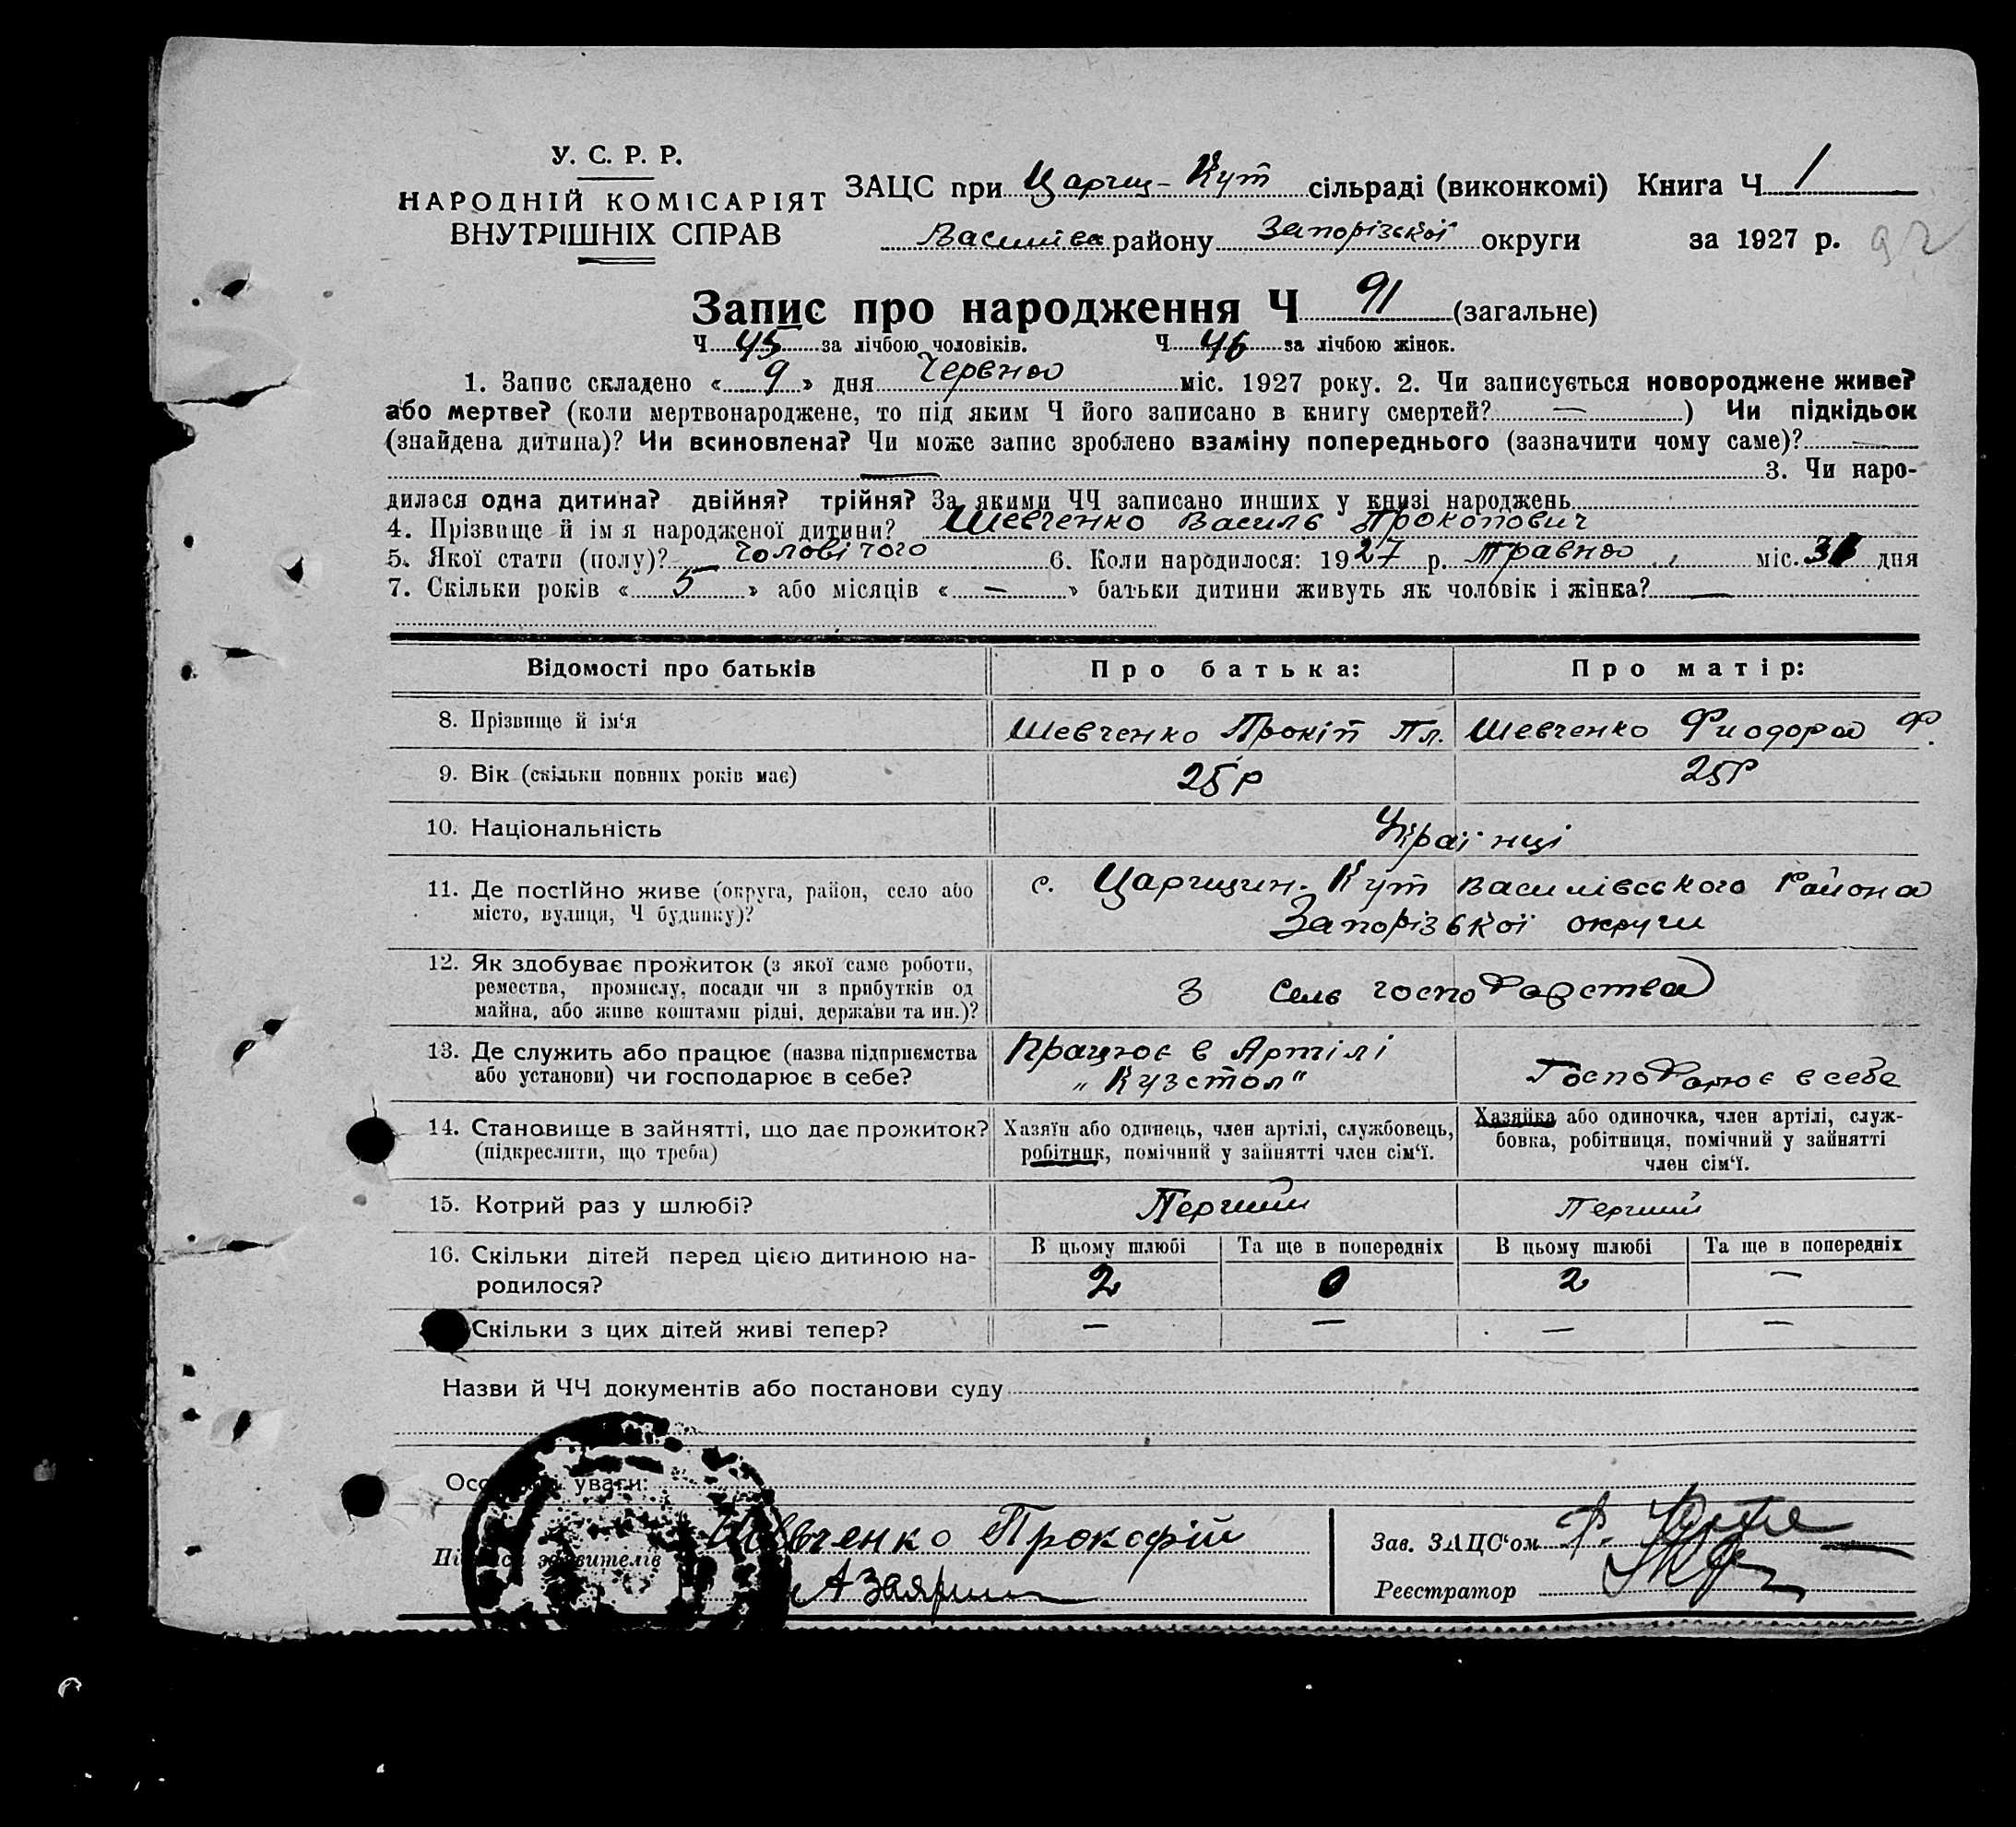 У. С. Р. Р.
НАРОДНІЙ КОМІСАРІЯТ
ВНУТРІШНІХ СПРАВ
ЗАЦС при Царчиц-Кут сільраді (виконкомі) Книга Ч 1
Василівс району Запорізської округи за 1927 р. 92
Запис про народження Ч 91 (загальне)
Ч 45 за лічбою чоловіків. Ч 46 за лічбою жінок.
1. Запис складено « 9 » дня Червня міс. 1927 року. 2. Чи записується новороджене живе?
або мертве? (коли мертвонароджене, то під яким Ч його записано в книгу смертей? — ) Чи підкідьок
(знайдена дитина)? Чи всиновлена? Чи може запис зроблено взаміну попереднього (зазначити чому саме)? —
— 3. Чи наро-
дилася одна дитина? двійня? трійня? За якими ЧЧ записано инших у книзі народжень
4. Прізвище й ім я народженої дитини? Шевченко Василь Прокопович
5. Якої стати (полу)? чоловічого 6. Коли народилося: 1927 р. Травня міс. 31 дня
7. Скільки років « 5 » або місяців « — » батьки дитини живуть як чоловік і жінка? —
Відомості про батьків Про батька: Про матір:
8. Прізвище й ім‘я Шевченко Прокіп Пл. Шевченко Фиодора Ф.
9. Вік (скільки повних років має) 25 р 25 р
10. Національність Українці
11. Де постійно живе (округа, район, село або с. Царицин-Кут Василівсского Района
місто, вулиця, Ч будинку)? Запорізької округи
12. Як здобуває прожиток (з якої саме роботи,
ремества, промислу, посади чи з прибутків од З Сель господарства
майна, або живе коштами рідні, держави та ин.)?
13. Де служить або працює (назва підприємства Працює в Артілі
або установи) чи господарює в себе? „Кузстол" Господарює в себе
14. Становище в зайнятті, що дає прожиток? Хазяїн або одинець, член артілі, службовець, Хазяйка або одиночка, член артілі, служ-
(підкреслити, що треба) робітник, помічний у зайнятті член сім‘ї. бовка, робітниця, помічний у зайнятті
член сім‘ї.
15. Котрий раз у шлюбі? Перший Перший
16. Скільки дітей перед цією дитиною на- В цьому шлюбі Та ще в попередніх В цьому шлюбі Та ще в попередніх
родилося? 2 0 2 —
Скільки з цих дітей живі тепер? — — — —
Назви й ЧЧ документів або постанови суду
уваги:
Шевченко Прокофій Зав. ЗАЦС‘ом
Реєстратор